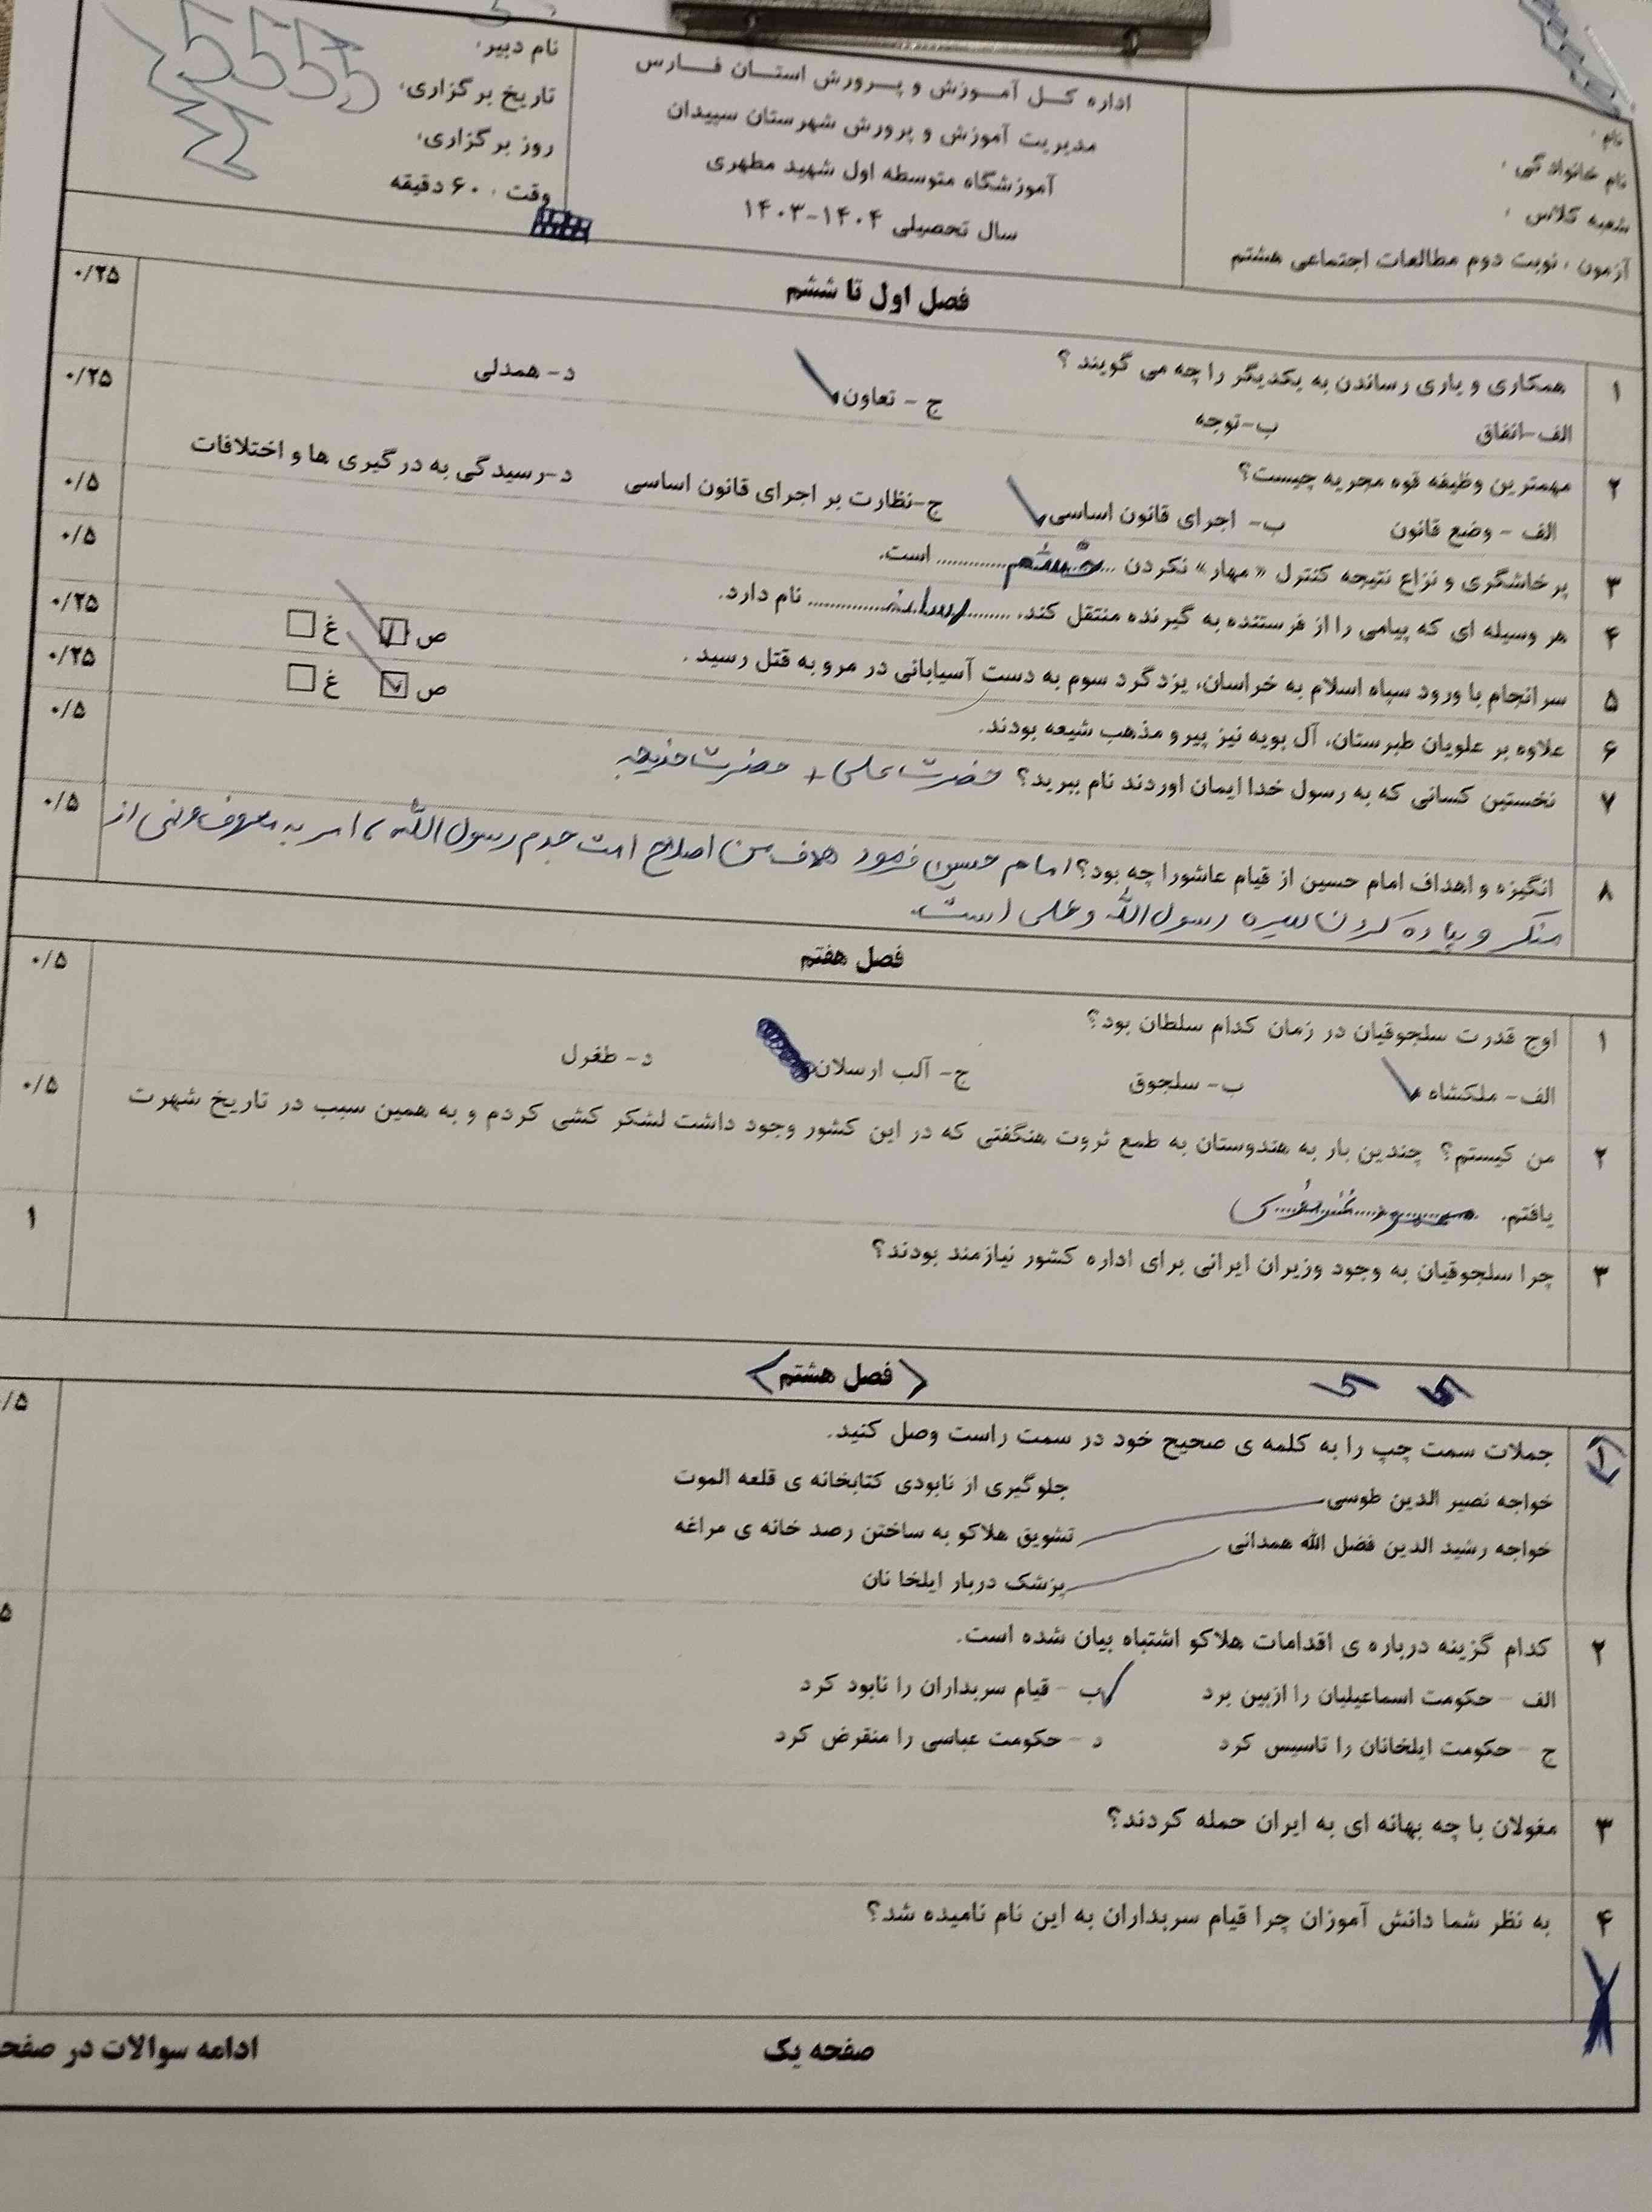 نام :
نام خانوادگی :
شعبه کلاس :
آزمون : نوبت دوم مطالعات اجتماعی هشتم
اداره کل آموزش و پرورش استان فارس
مدیریت آموزش و پرورش شهرستان سپیدان
آموزشگاه متوسطه اول شهید مطهری
سال تحصیلی ۱۴۰۴-۱۴۰۳
نام دبیر:
تاریخ برگزاری:
روز برگزاری:
وقت : ۶۰ دقیقه
5555
فصل اول تا ششم
۰/۲۵
۱ همکاری و یاری رساندن به یکدیگر را چه می گویند ؟
الف-انفاق ب-توجه ج - تعاون د- همدلی
۰/۲۵
۲ مهمترین وظیفه قوه مجریه چیست؟
الف - وضع قانون ب- اجرای قانون اساسی ج-نظارت بر اجرای قانون اساسی د-رسیدگی به درگیری ها و اختلافات
۰/۵
۳ پرخاشگری و نزاع نتیجه کنترل «مهار» نکردن ......خشم...... است.
۰/۵
۴ هر وسیله ای که پیامی را از فرستنده به گیرنده منتقل کند، ......رسانه...... نام دارد.
۰/۲۵
۵ سرانجام با ورود سپاه اسلام به خراسان، یزدگرد سوم به دست آسیابانی در مرو به قتل رسید . ص غ
۰/۲۵
۶ علاوه بر علویان طبرستان، آل بویه نیز پیرو مذهب شیعه بودند. ص غ
۰/۵
۷ نخستین کسانی که به رسول خدا ایمان اوردند نام ببرید؟ حضرت علی + حضرت خدیجه
۰/۵
۸ انگیزه و اهداف امام حسین از قیام عاشورا چه بود؟ امام حسین فرمود هدف من اصلاح امت جدم رسول الله ، امر به معروف و نهی از
منکر و پیاده کردن سیره رسول الله و علی است.
فصل هفتم
۰/۵
۱ اوج قدرت سلجوقیان در زمان کدام سلطان بود؟
الف- ملکشاه ب- سلجوق ج- آلب ارسلان د- طغرل
۰/۵
۲ من کیستم؟ چندین بار به هندوستان به طمع ثروت هنگفتی که در این کشور وجود داشت لشکر کشی کردم و به همین سبب در تاریخ شهرت
یافتم.
۱
۳ چرا سلجوقیان به وجود وزیران ایرانی برای اداره کشور نیازمند بودند؟
< فصل هشتم >
/۵
۱ جملات سمت چپ را به کلمه ی صحیح خود در سمت راست وصل کنید.
خواجه نصیر الدین طوسی جلوگیری از نابودی کتابخانه ی قلعه الموت
خواجه رشید الدین فضل الله همدانی تشویق هلاکو به ساختن رصد خانه ی مراغه
پزشک دربار ایلخا نان
۵
۲ کدام گزینه درباره ی اقدامات هلاکو اشتباه بیان شده است.
الف - حکومت اسماعیلیان را ازبین برد ب - قیام سربداران را نابود کرد
ج - حکومت ایلخانان را تاسیس کرد د - حکومت عباسی را منقرض کرد
۳ مغولان با چه بهانه ای به ایران حمله کردند؟
۴ به نظر شما دانش آموزان چرا قیام سربداران به این نام نامیده شد؟
صفحه یک
ادامه سوالات در صفح